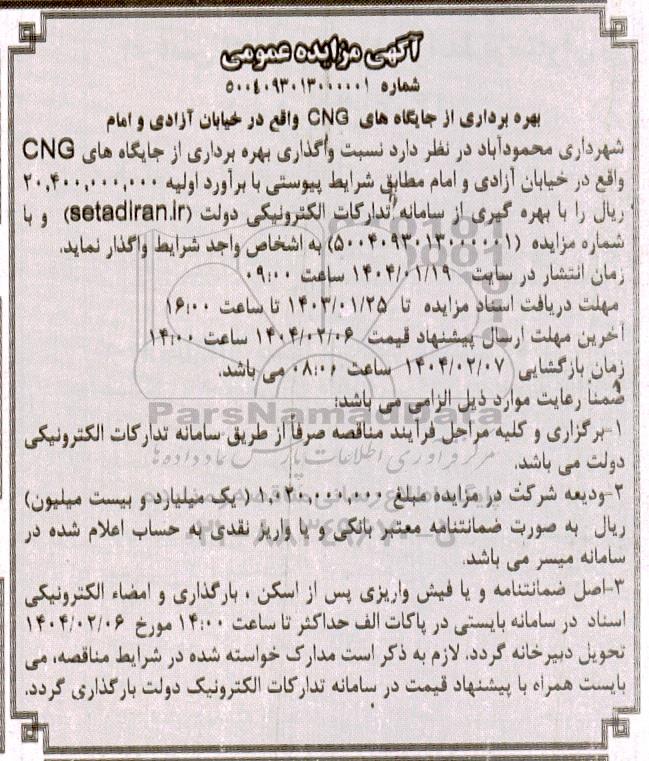 آگهی مزایده عمومی
شماره ۵۰۰۴۰۹۳۰۱۳۰۰۰۰۰۱
بهره برداری از جایگاه های CNG واقع در خیابان آزادی و امام
شهرداری محمودآباد در نظر دارد نسبت واگذاری بهره برداری از جایگاه های CNG
واقع در خیابان آزادی و امام مطابق شرایط پیوستی با برآورد اولیه ۲۰,۴۰۰,۰۰۰,۰۰۰
ریال را با بهره گیری از سامانه تدارکات الکترونیکی دولت (setadiran.ir) و با
شماره مزایده (۵۰۰۴۰۹۳۰۱۳۰۰۰۰۰۱) به اشخاص واجد شرایط واگذار نماید.
زمان انتشار در سایت ۱۴۰۴/۰۱/۱۹ ساعت ۰۹:۰۰
مهلت دریافت اسناد مزایده تا ۱۴۰۳/۰۱/۲۵ تا ساعت ۱۶:۰۰
آخرین مهلت ارسال پیشنهاد قیمت ۱۴۰۴/۰۲/۰۶ ساعت ۱۴:۰۰
زمان بازگشایی ۱۴۰۴/۰۲/۰۷ ساعت ۰۸:۰۶ می باشد.
ضمناً رعایت موارد ذیل الزامی می باشد:
ParsNamadData
۱-برگزاری و کلیه مراحل فرآیند مناقصه صرفاً از طریق سامانه تدارکات الکترونیکی
مرکز فرآوری اطلاعات پارس نماد داده ها
دولت می باشد.
۲-ودیعه شرکت در مزایده مبلغ ۱,۰۲۰,۰۰۰,۰۰۰ ( یک میلیارد و بیست میلیون)
ریال به صورت ضمانتنامه معتبر بانکی و یا واریز نقدی به حساب اعلام شده در
سامانه میسر می باشد.
۳-اصل ضمانتنامه و یا فیش واریزی پس از اسکن ، بارگذاری و امضاء الکترونیکی
اسناد در سامانه بایستی در پاکات الف حداکثر تا ساعت ۱۴:۰۰ مورخ ۱۴۰۴/۰۲/۰۶
تحویل دبیرخانه گردد. لازم به ذکر است مدارک خواسته شده در شرایط مناقصه، می
بایست همراه با پیشنهاد قیمت در سامانه تدارکات الکترونیک دولت بارگذاری گردد.